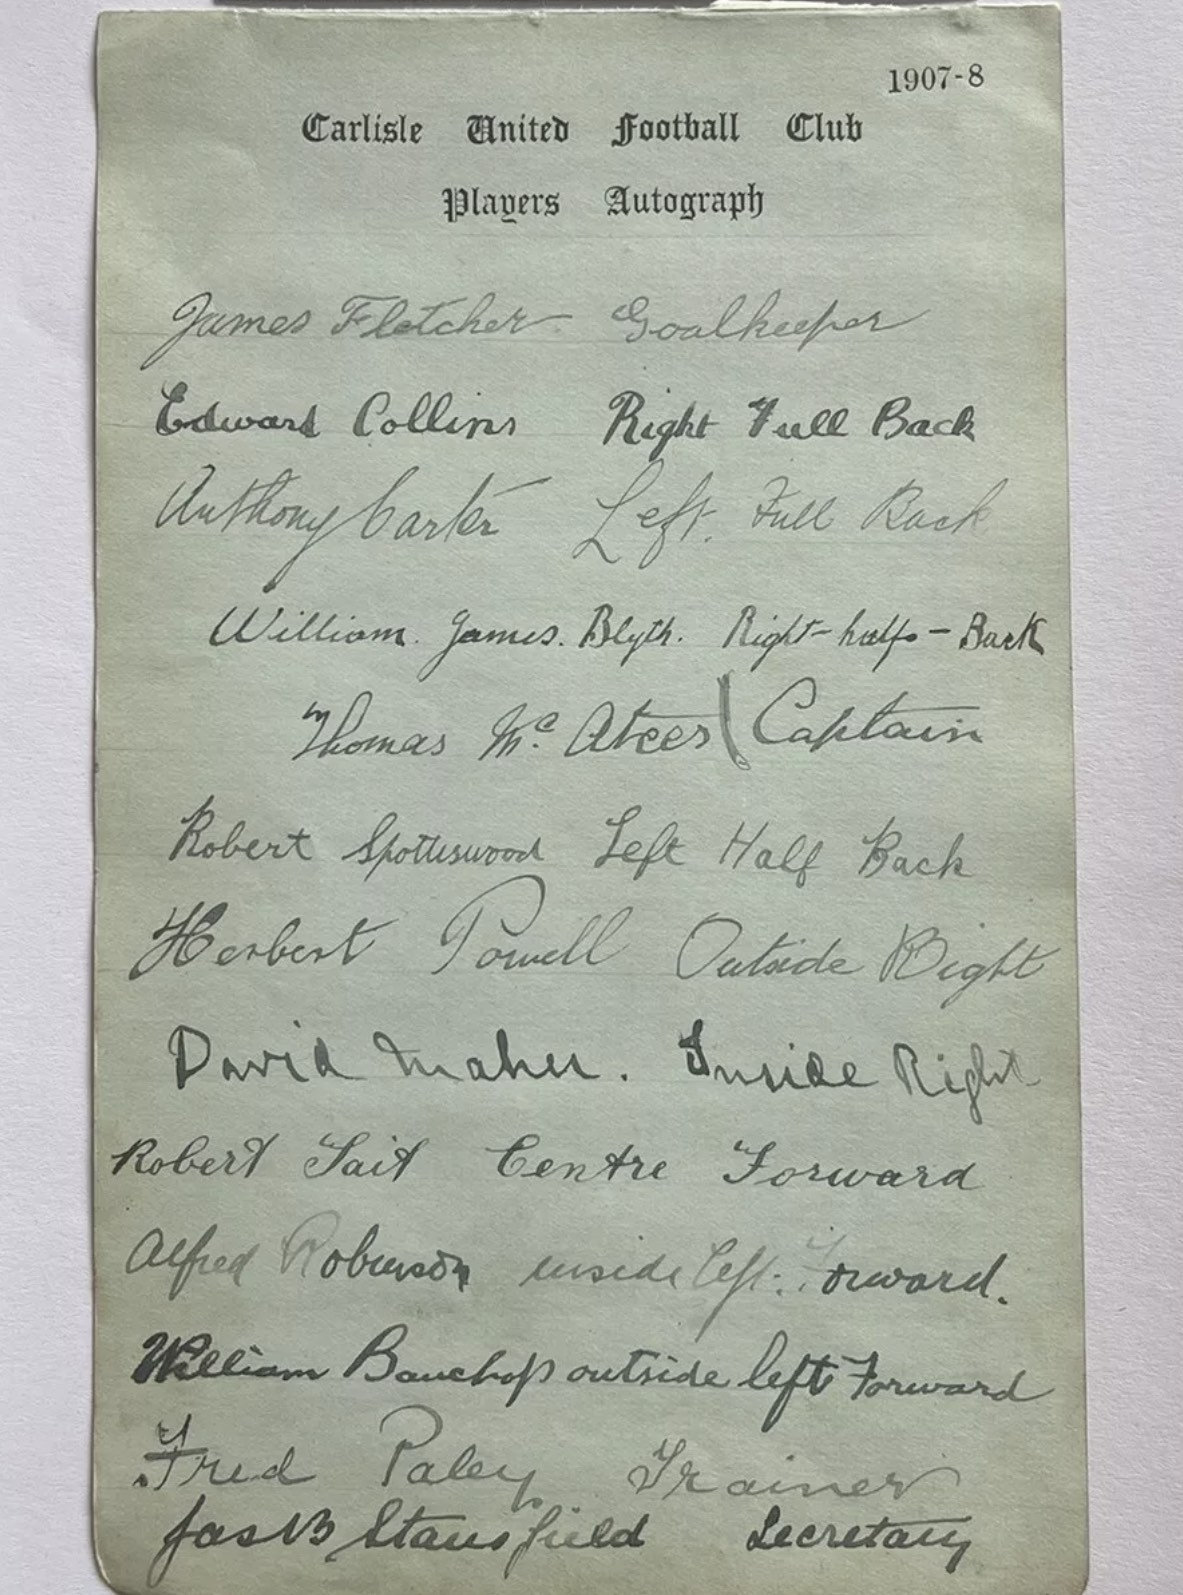 1907-8
Carlisle United Football Club
Players Autograph
James Fletcher Goalkeeper
Edward Collins Right Full Back
Anthony Carter Left. Full Back
William. James. Blyth. Right-half-Back
Thomas Mc Ateer Captain
Robert Spottiswood Left Half Back
Herbert Powell Outside Right
David Maher. Inside Right
Robert Tait Centre Forward
Alfred Robinson inside left. Forward.
William Bauchop outside left Forward
Fred Paley Trainer
Jas B Stansfield Secretary